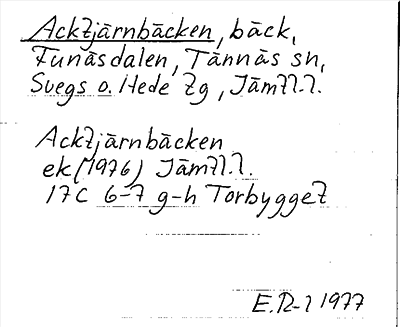 Acktjärnbäcken, bäck,
Funäsdalen, Tännäs sn,
Svegs o. Hede tg, Jämtl.l.
Acktjärnbäcken
ek (1976) Jämtl.l.
17C 6-7 g-h Torbygget
E.R-l 1977